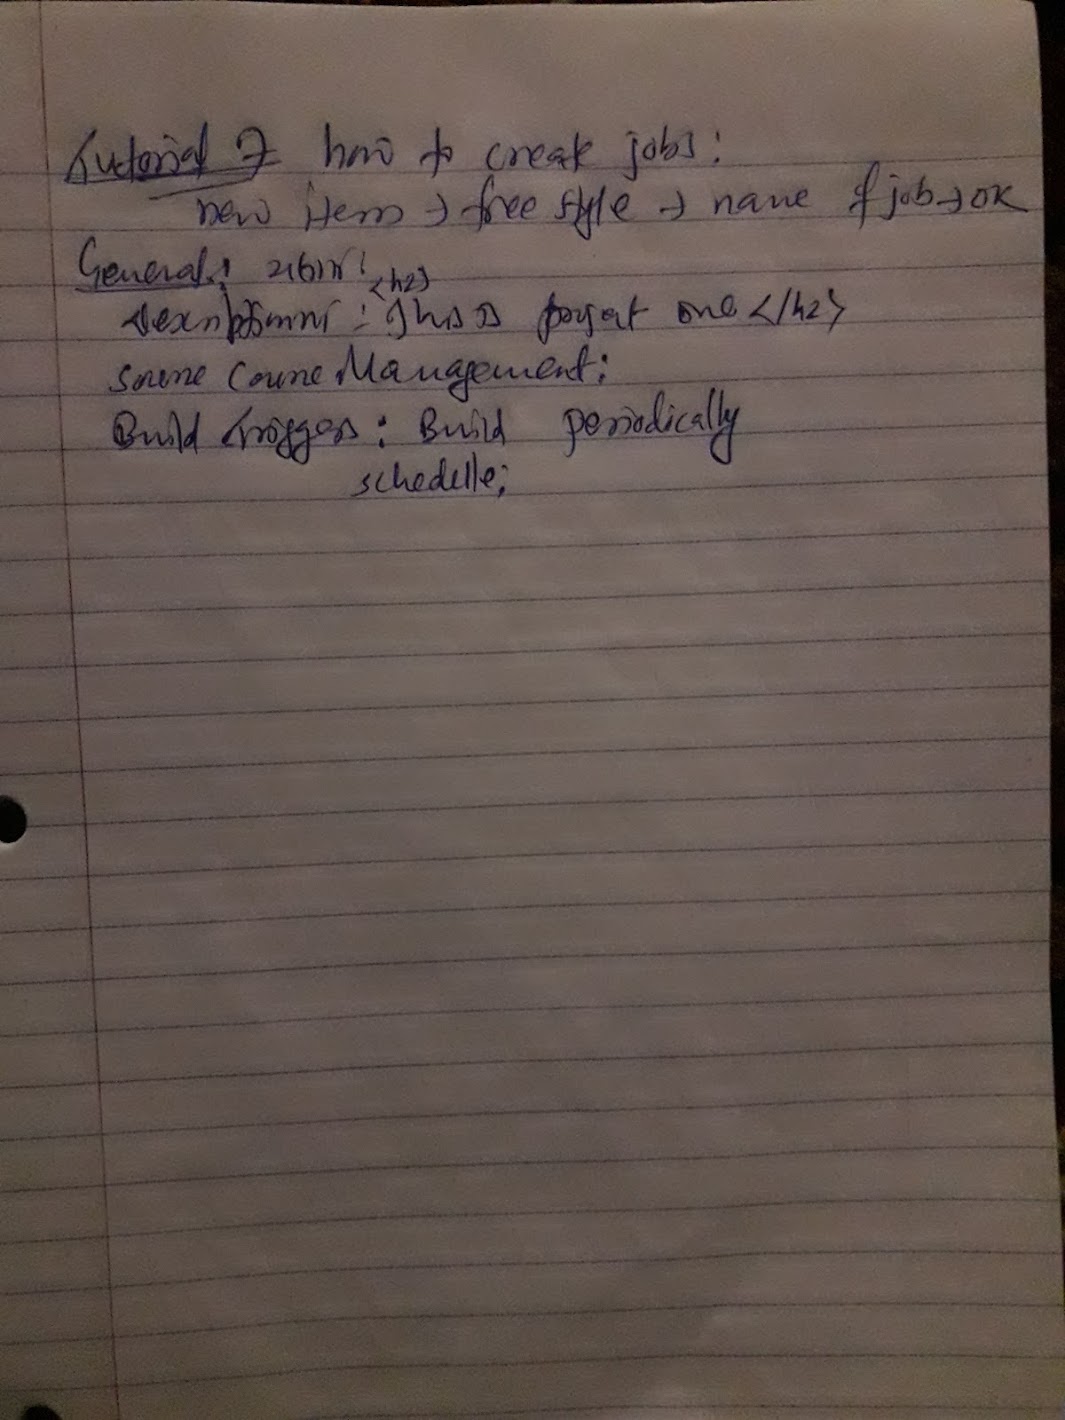 Tutorial 7 how to create jobs:
new item → free style → name of job → OK
General:
description: <h2> This is project one </h2>
Source Course Management:
Build triggers: Build periodically
schedulle;